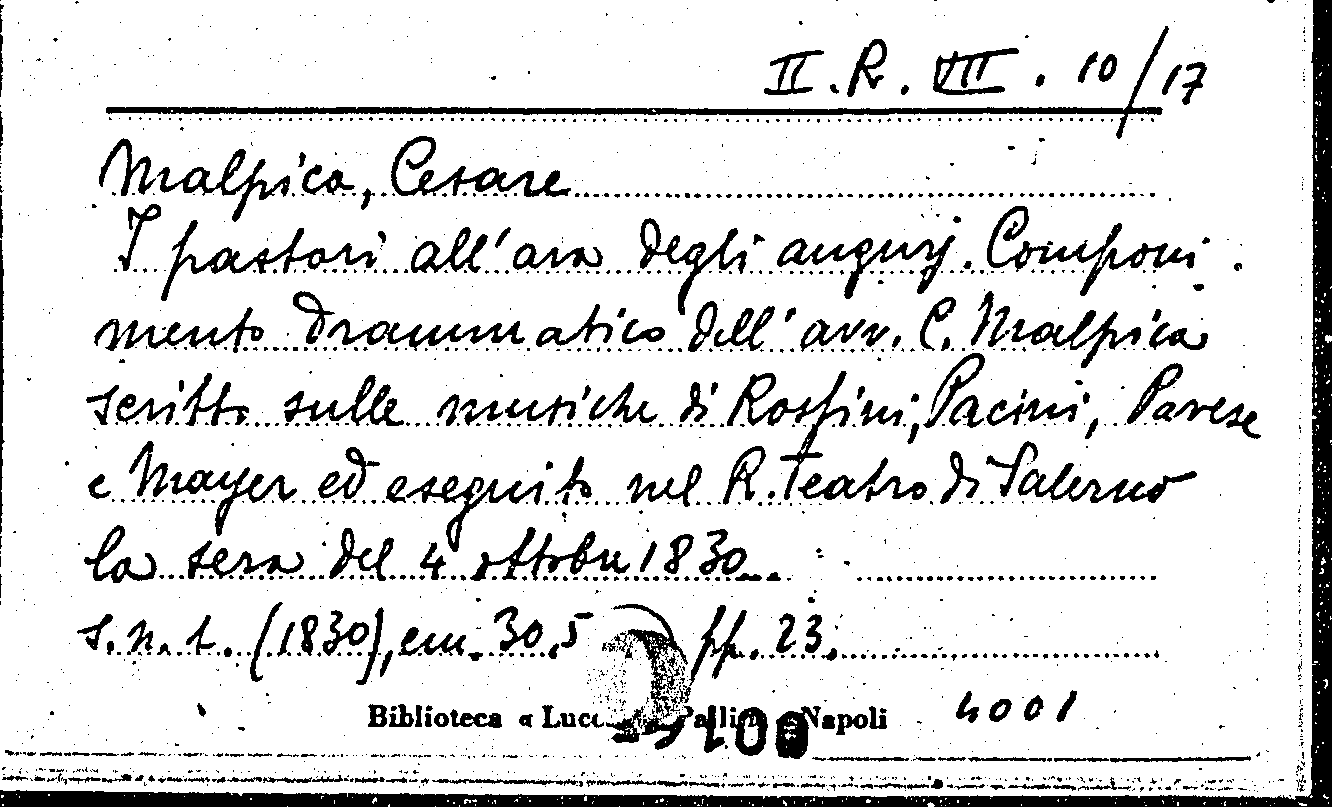 II. R. VII. 10/17
Malpica, Cesare
I pastori all'ara degli augurj. Componi-
mento drammatico dell'avv. C. Malpica
scritto sulle musiche di Rossini, Pacini, Pavese
e Mayer ed eseguito nel R. Teatro di Salerno
la sera del 4 ottobre 1830.
s. n. t. (1830), cm. 30,5 pp. 23.
Biblioteca « Napoli 4001